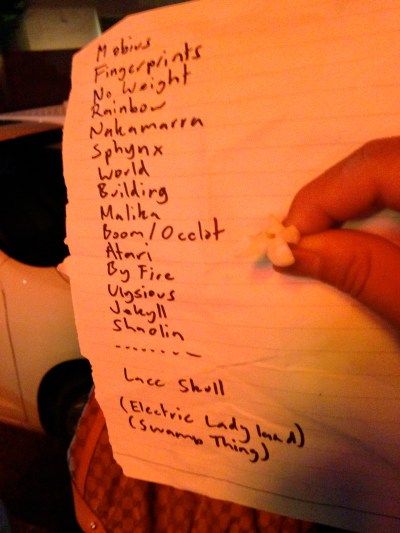 Mobius
Fingerprints
No Weight
Rainbow
Nakamarra
Sphynx
World
Building
Malika
Boom / Occlat
Atari
By Fire
Ulysious
Jekyll
Shaolin
--------
Lace Skull
(Electric Lady land)
(Swamp Thing)